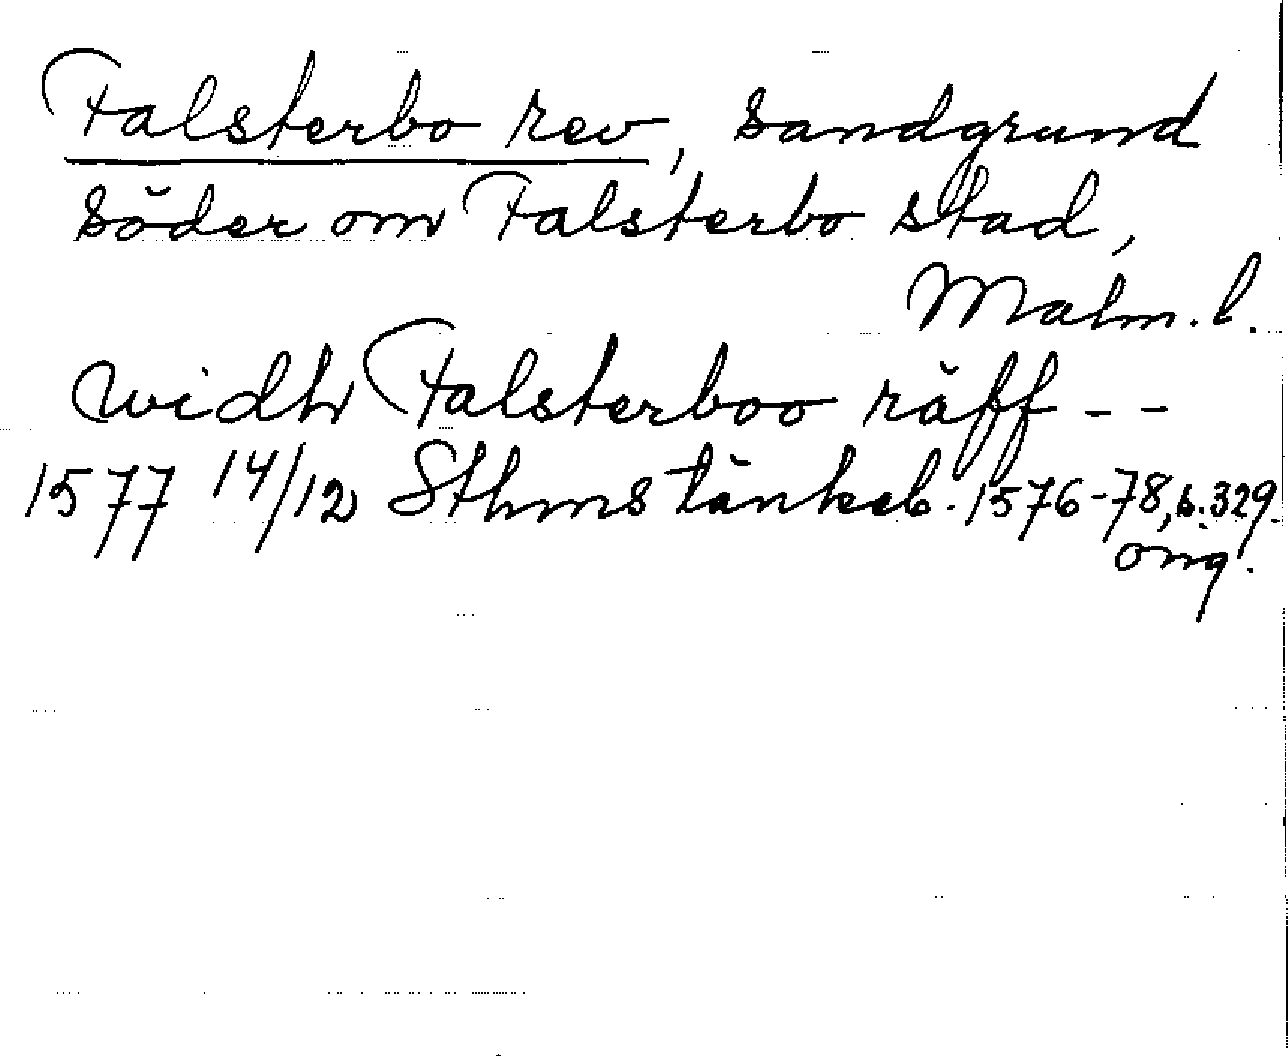 Falsterbo rev, sandgrund
söder om Falsterbo stad,
Malm. l.
widh Falsterboo räff - -
1577 14/12 Sthms tänkeb. 1576-78, s. 329.
orig.